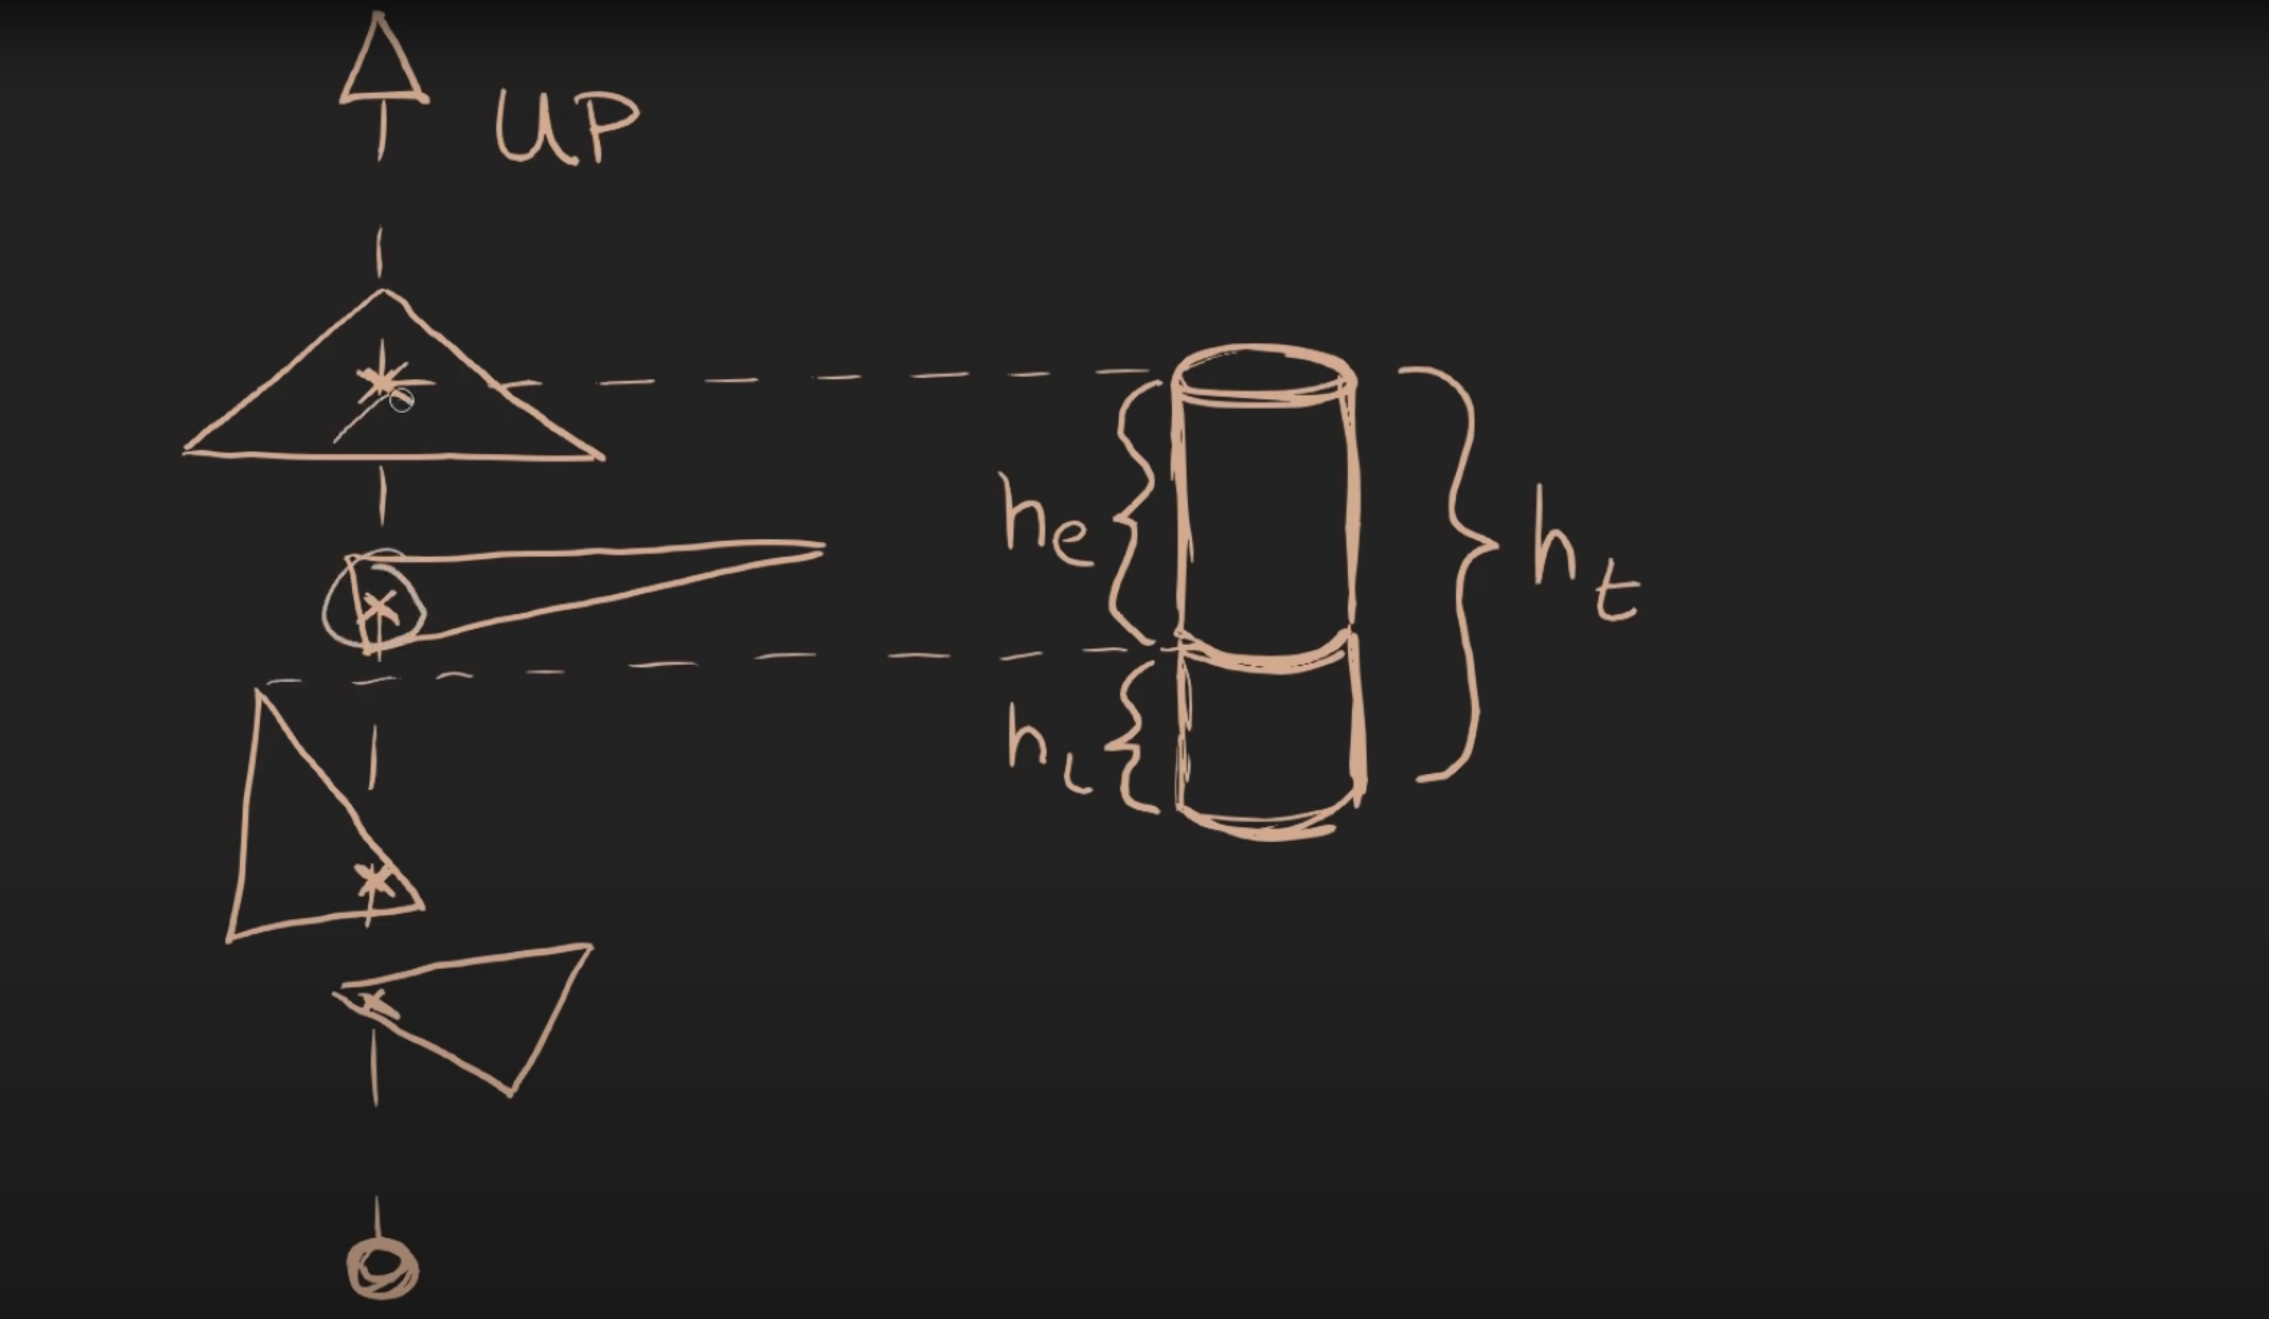 UP
he
ht
hL